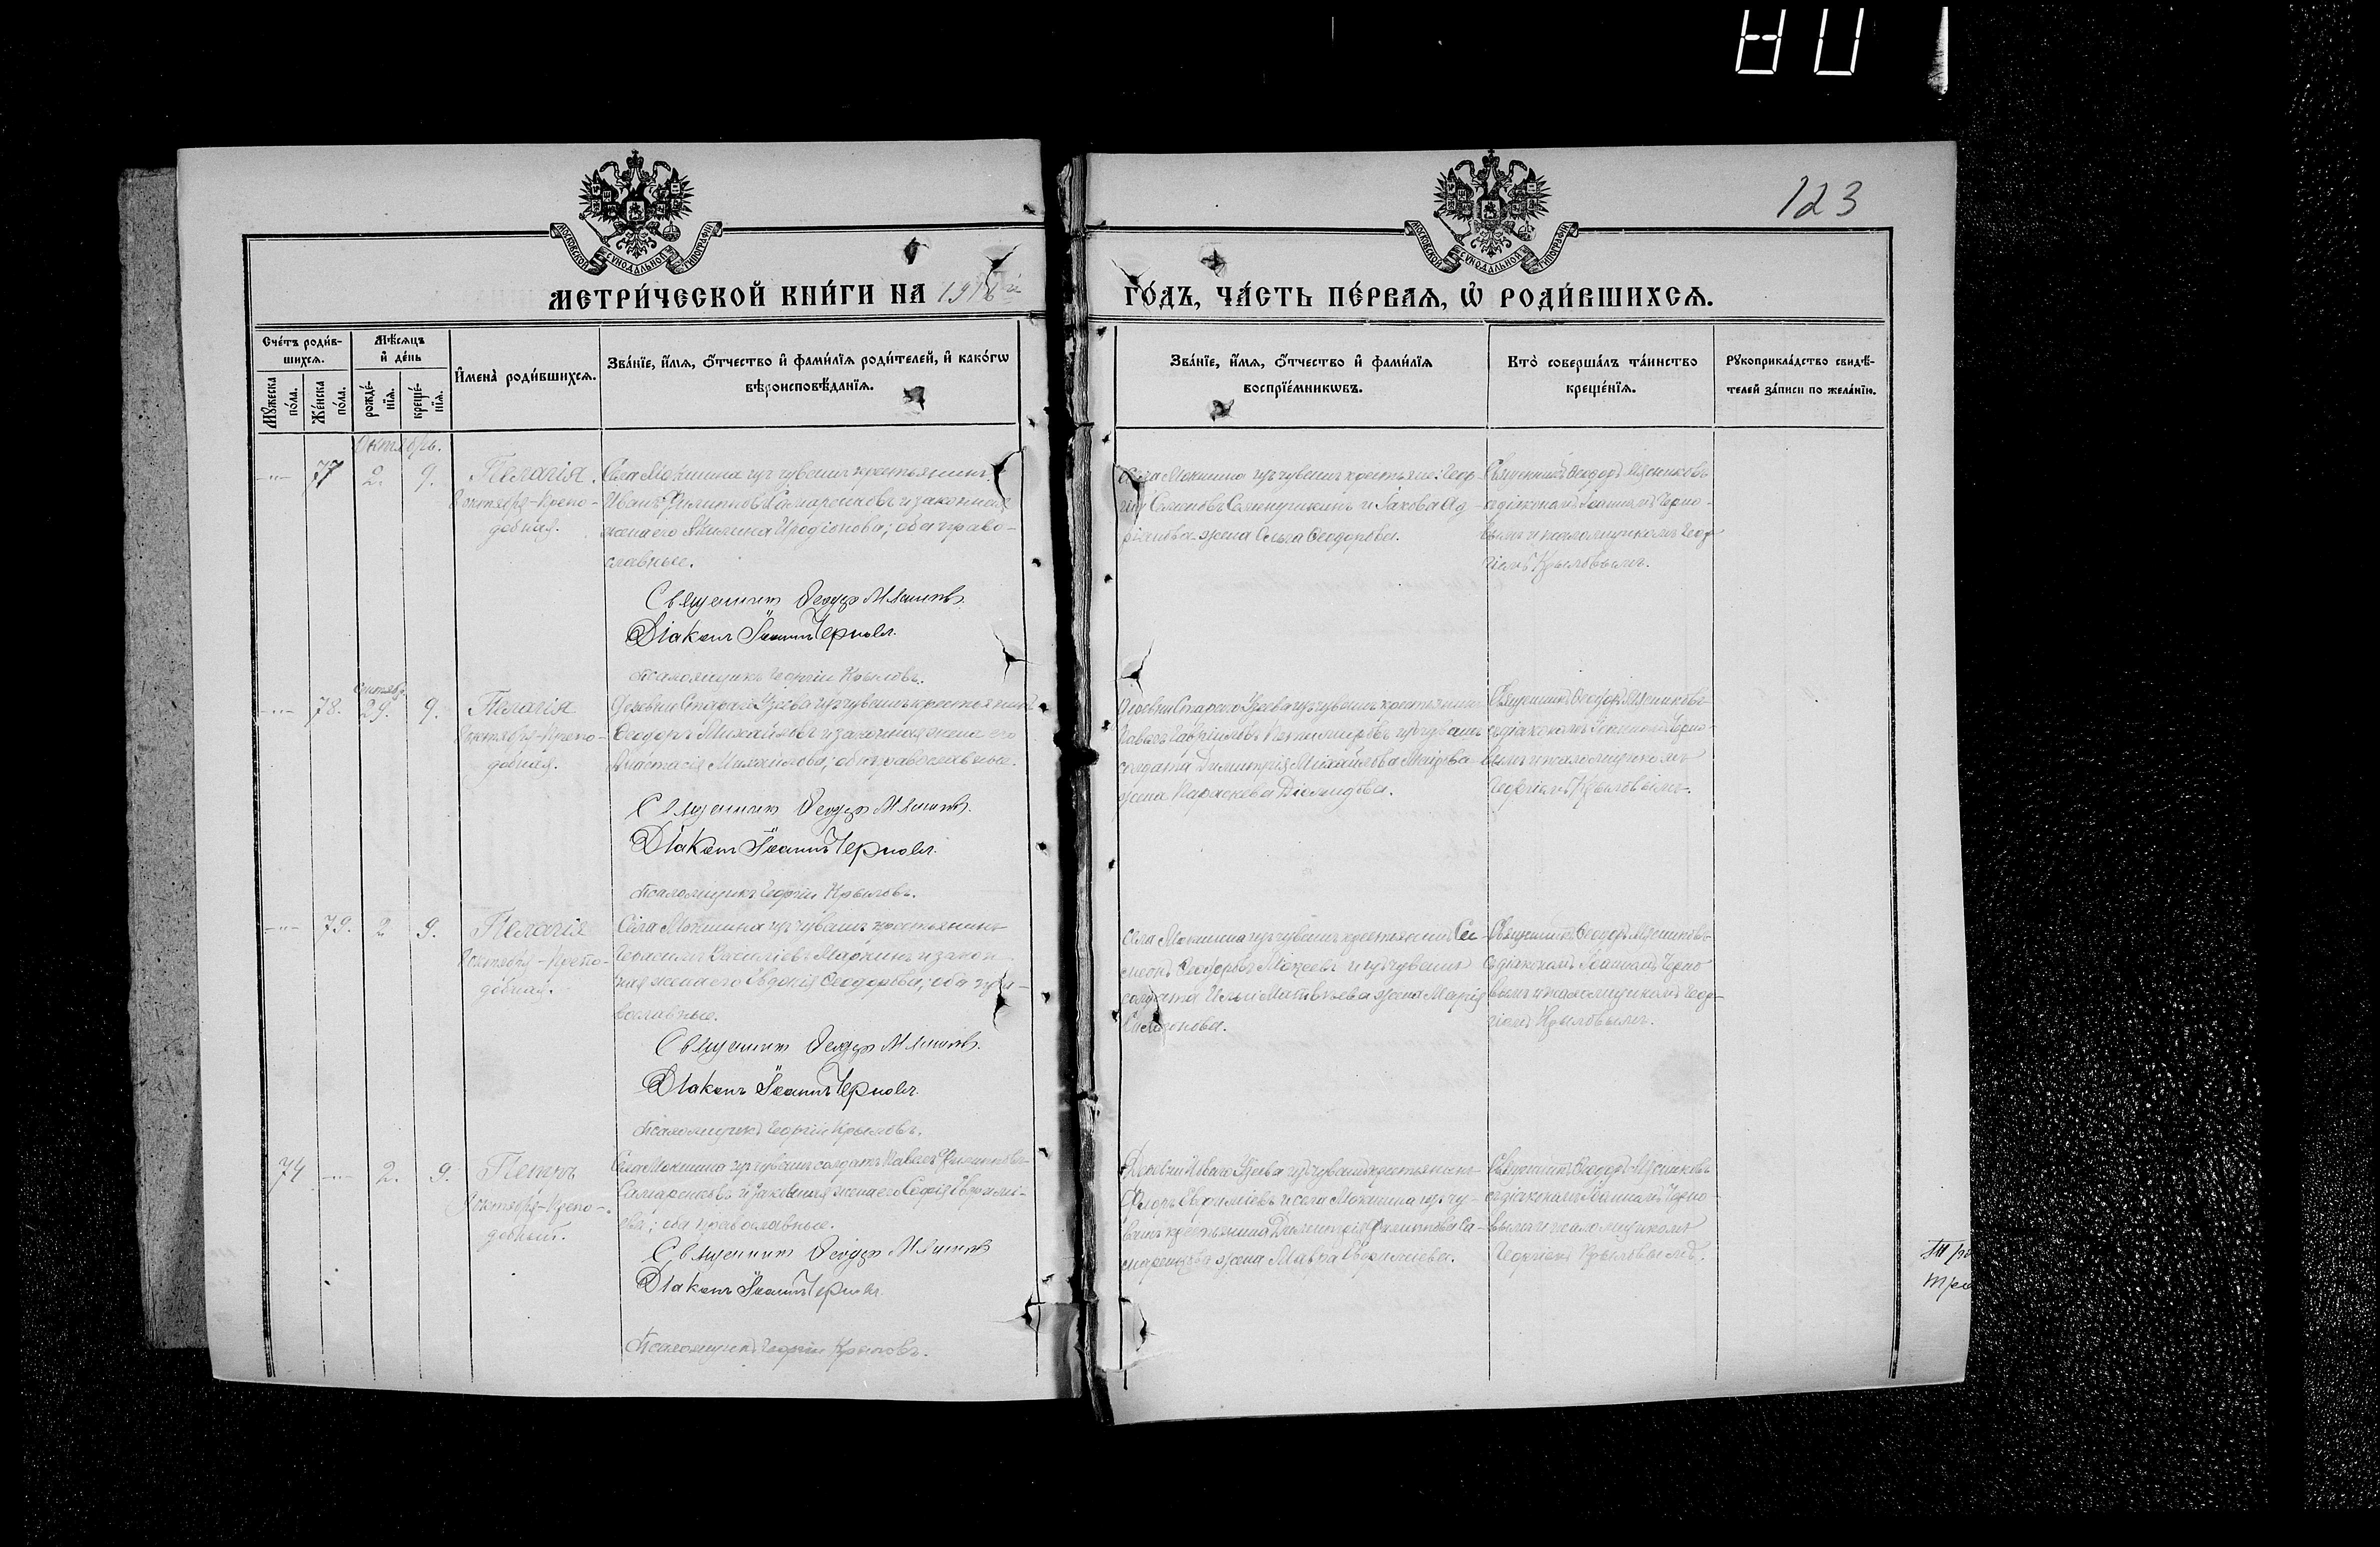 123
МОСКОВСКОЙ СѴНОДАЛЬНОЙ ТИПОГРАФІИ
МОСКОВСКОЙ СѴНОДАЛЬНОЙ ТИПОГРАФІИ
МЕТРИ́ЧЕСКОЙ КНИ́ГИ НА
ГО́ДЪ, ЧА́СТЬ ПЕ́РВАѦ, Ѡ҆ РОДИ́ВШИХСѦ.
Сче́тъ роди́в-
шихсѧ.
Мꙋ́жеска
по́ла.
Же́нска
по́ла.
Мѣ́сѧцъ
и҆ де́нь
рожде́-
нїѧ.
креще́-
нїѧ.
И҆мена̀ роди́вшихсѧ.
Зва́нїе, и҆́мѧ, ѻ҆́тчество и҆ фами́лїѧ роди́телей, и҆ како́гѡ
вѣроисповѣ́данїѧ.
Зва́нїе, и҆́мѧ, ѻ҆́тчество и҆ фами́лїѧ
воспрїе́мникѡвъ.
Кто̀ соверша́лъ та́инство
креще́нїѧ.
Рꙋкоприкла́дство свидѣ́-
телей за́писи по жела́нїю.
Октябрь.
77 2. 9.
Пелагія.
8 октября-Препо-
добная.
Села Мокшина изъ чувашъ крестьянинъ
Иванъ Филипповъ Самаренковъ и законная
жена его Акилина Иродіонова; оба право-
славные.
Священникъ Ѳеодоръ Мясниковъ.
Діаконъ Іоаннъ Черновъ.
Псаломщикъ Георгій Крыловъ.
Села Мокшина изъ чувашъ крестьяне: Геор-
гій Семеновъ и Іакова Ад-
ріанова жена Ольга Ѳеодорова.
Священникъ Ѳеодоръ Мясниковъ
съ діакономъ Іоанномъ Черно-
вымъ и псаломщикомъ Геор-
гіемъ Крыловымъ.
Сентябр.
78. 29. 9.
Пелагія
8 октября-Препо-
добная.
Деревни Стараго Узеева изъ чувашъ крестьянинъ
Ѳеодоръ Михайловъ и законная жена его
Анастасія Михайлова; оба православные.
Священникъ Ѳеодоръ Мясниковъ.
Діаконъ Іоаннъ Черновъ.
Псаломщикъ Георгій Крыловъ.
Деревни Стараго Узеева изъ чувашъ крестьянинъ
Павелъ Гавриловъ изъ чувашъ
солдата Димитрія Михайлова
жена Параскева Діомидова.
Священникъ Ѳеодоръ Мясниковъ
съ діакономъ Іоанномъ Черно-
вымъ и псаломщикомъ
Георгіемъ Крыловымъ.
79. 2 9.
Пелагія
8 октября-Препо-
добная.
Села Мокшина изъ чувашъ крестьянинъ
Василіевъ Маркинъ и закон-
ная жена его Евдокія Ѳеодорова; оба пра-
вославные.
Священникъ Ѳеодоръ Мясниковъ.
Діаконъ Іоаннъ Черновъ.
Псаломщикъ Георгій Крыловъ.
Села Мокшина изъ чувашъ крестьянинъ Си-
меонъ Ѳеодоровъ Мокеевъ и изъ чувашъ
солдата Ильи Матвѣева жена Марія
Священникъ Ѳеодоръ Мясниковъ
съ діакономъ Іоанномъ Черно
вымъ и псаломщикомъ Геор-
гіемъ Крыловымъ.
74 2. 9.
Петръ
8 октября-Препо-
добный.
Села Мокшина изъ чувашъ солдатъ Павелъ Филипповъ
Самаренковъ и законная жена его Софія Евфиміе-
ва; оба православные.
Священникъ Ѳеодоръ Мясниковъ
Діаконъ Іоаннъ Черновъ.
Псаломщикъ Георгій Крыловъ.
Деревни Новаго Узеева изъ чувашъ крестьянинъ
Флоръ и села Мокшина изъ чу-
вашъ крестьянина Димитрія Филиппова Са-
маренкова жена Мавра.
Священникъ Ѳеодоръ Мясниковъ
съ діакономъ Іоанномъ Черно-
вымъ и псаломщикомъ
Георгіемъ Крыловымъ.